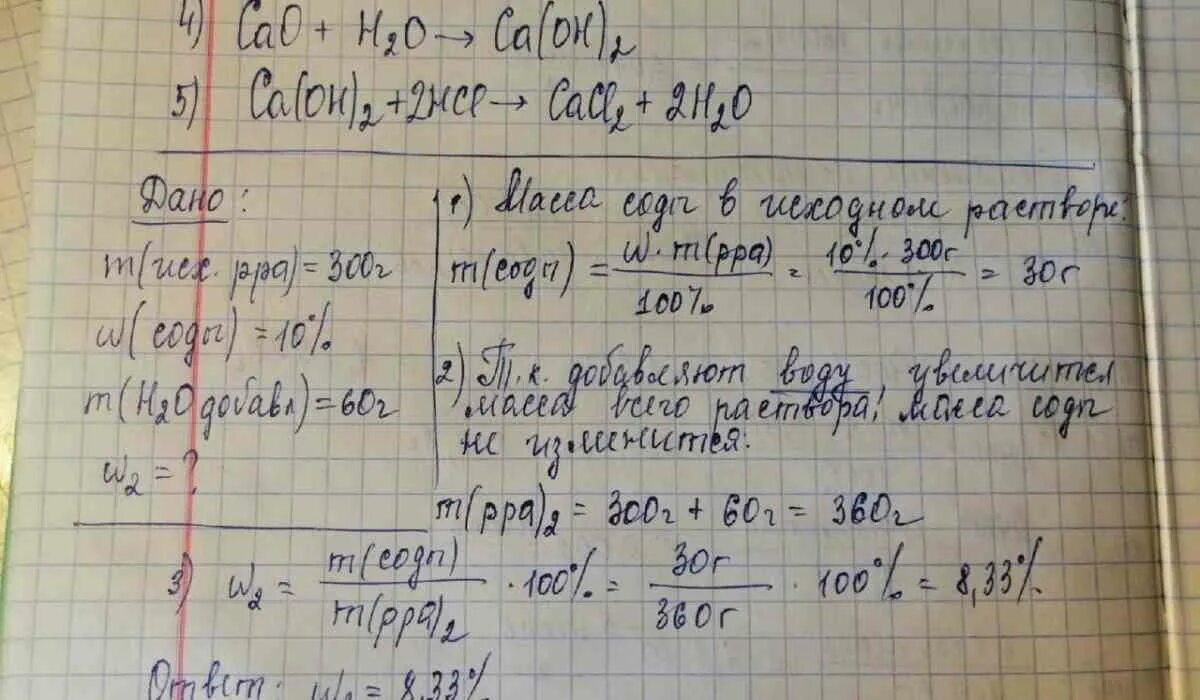 4) CaO + H₂O → Ca(OH)₂
5) Ca(OH)₂ + 2HCl → CaCl₂ + 2H₂O
Дано:
m(исх. рра) = 300г
w(соды) = 10%
m(H₂O добавл) = 60г
w₂ = ?
1) Масса соды в исходном растворе:
m(соды) = w · m(рра) / 100% = 10% · 300г / 100% = 30г
2) Т.к. добавляют воду, увеличится
масса всего раствора, масса соды
не изменится:
m(рра)₂ = 300г + 60г = 360г
3) w₂ = m(соды) / m(рра)₂ · 100% = 30г / 360г · 100% = 8,33%
Ответ: w₂ = 8,33%